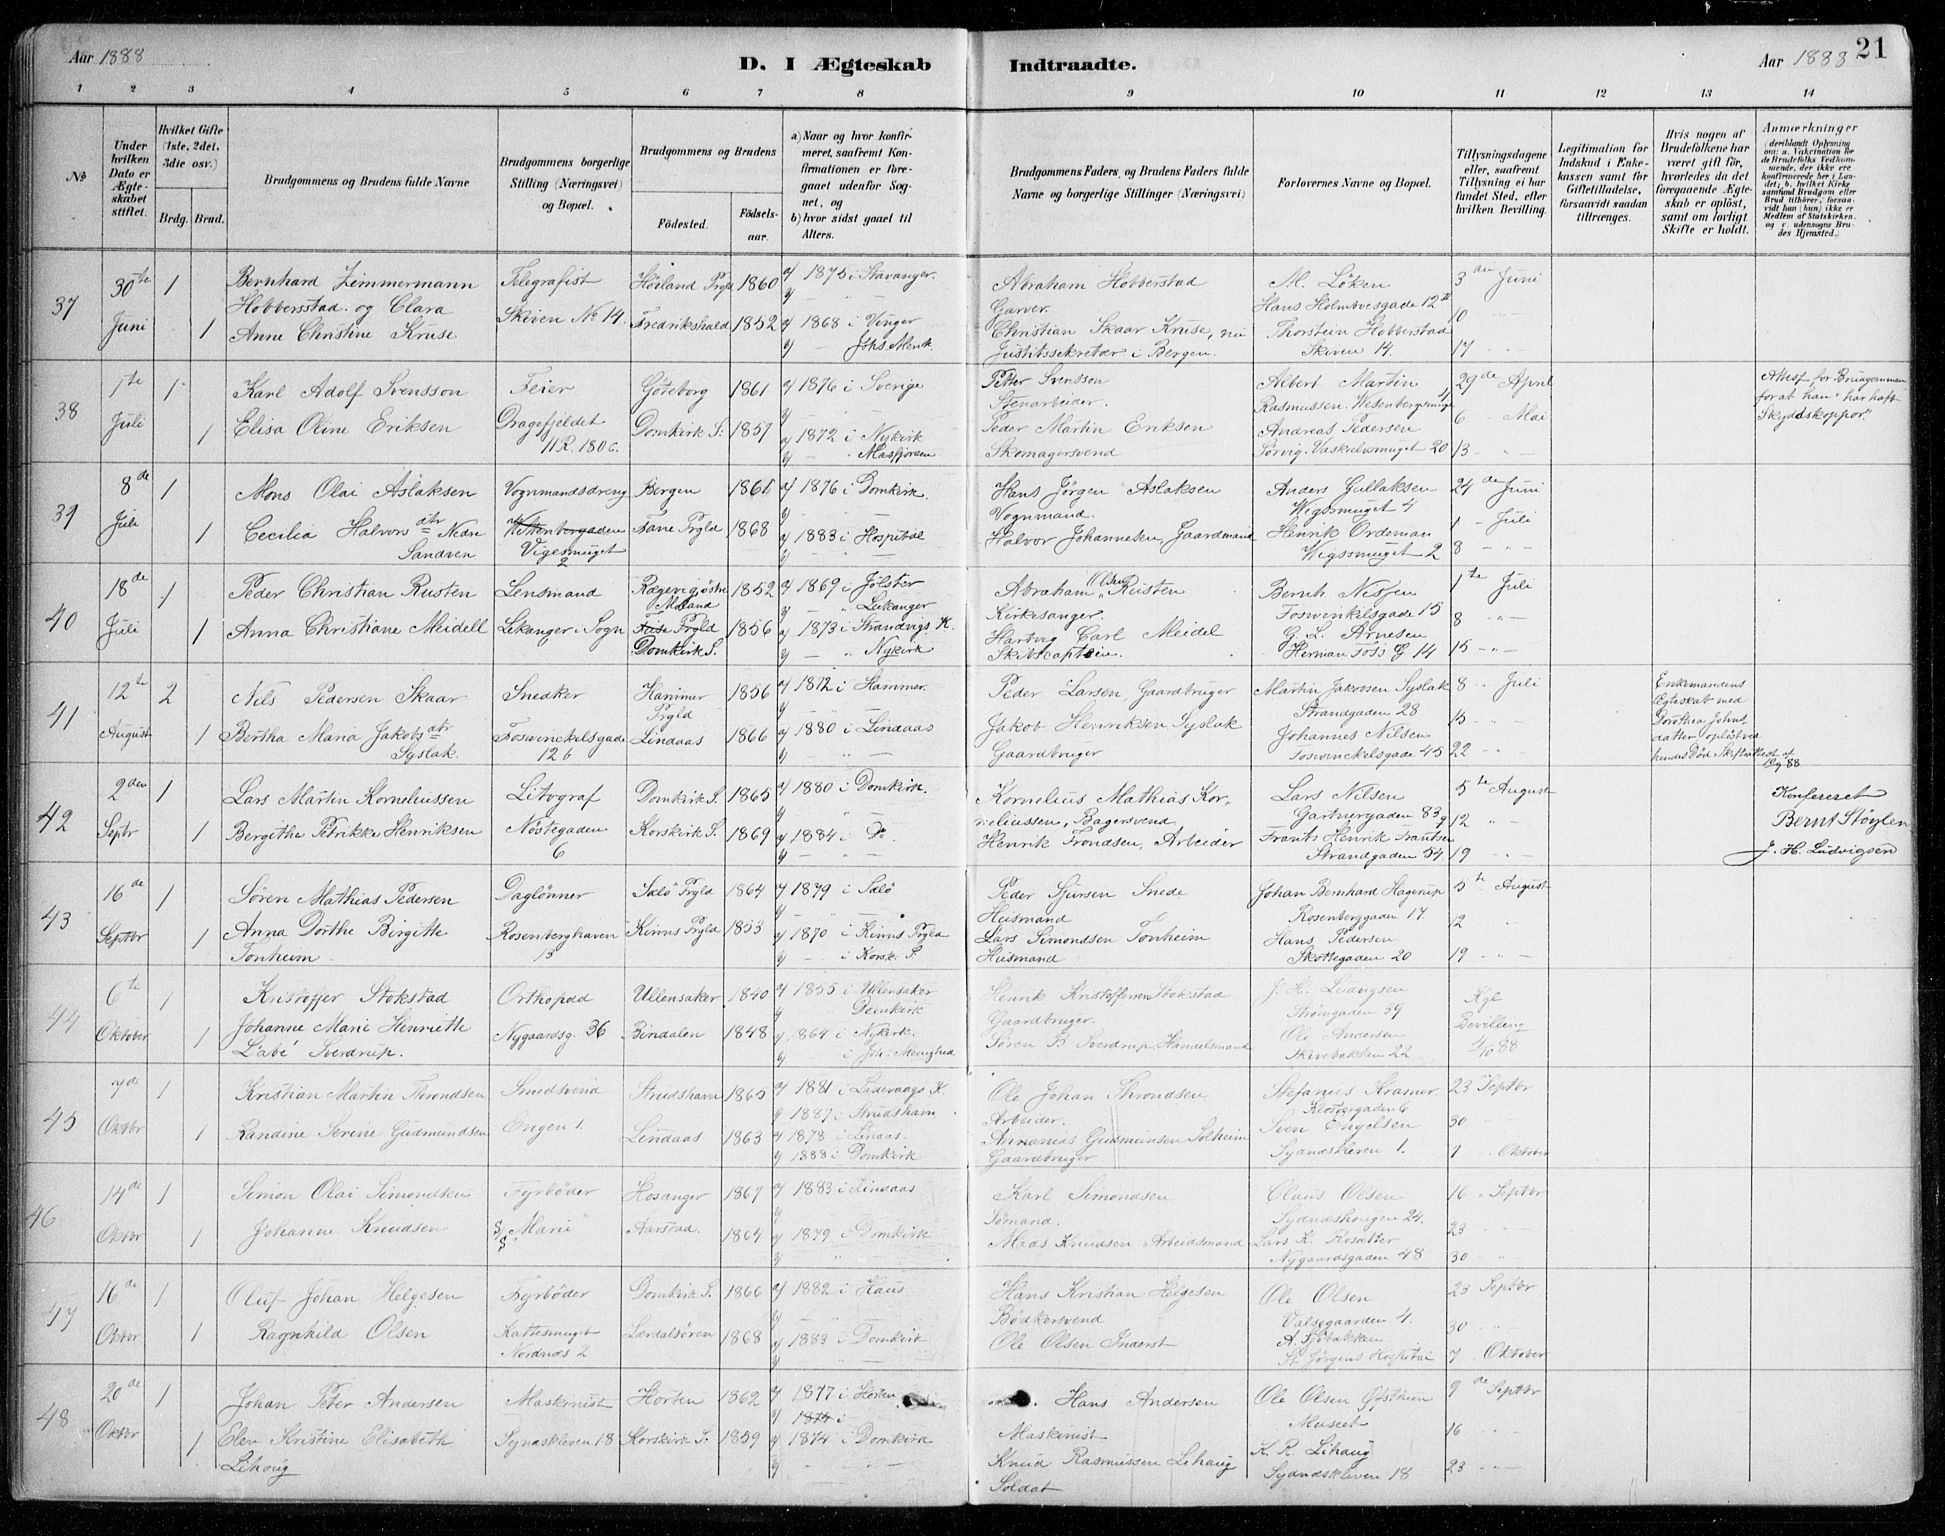 Aar 1888
D. I Ægteskab
Indtraadte.
Aar 1888
21
1 2 3 4 5 6 7 8 9 10 11 12 13 14
No
Under hvilken Dato er Ægteskabet stiftet.
Hvilket Gifte (1ste, 2det, 3die osv.)
Brdg. Brud.
Brudgommens og Brudens fulde Navne
Brudgommens borgerlige Stilling (Næringsvei) og Bopæl.
Brudgommens og Brudens
Fødested.
Fødselsaar.
a) Naar og hvor konfirmeret, saafremt Konfirmationen er foregaaet udenfor Sognet, og
b) hvor sidst gaaet til Alters.
Brudgommens Faders og Brudens Faders fulde Navne og borgerlige Stillinger (Næringsvei)
Forlovernes Navne og Bopæl.
Tillysningsdagene eller, saafremt Tillysning ei har fundet Sted, efter hvilken Bevilling.
Legitimation for Indskud i Enkekassen samt for Giftetilladelse, forsaavidt saadan tiltrænges.
Hvis nogen af Brudefolkene har været gift før, hvorledes da det foregaaende Ægteskab er opløst, samt om lovligt Skifte er holdt.
Anmærkninger (deriblandt Oplysning om: a. Vakcination for de Brudefolks Vedkommende, der ikke ere konfirmerede her i Landet; b. hvilket Kirkesamfund Brudgom eller Brud tilhører, forsaavidt han (hun) ikke er Medlem af Statskirken, og c. udensogns Brudes Hjemsted.)
37
30te Juni
1
1
Bernhard Zimmermann
Hobberstad og Clara
Anne Christine Kruse
Telegrafist
Skiven No 14.
Høiland Prgld 1860
Fredrikshald 1852
a) 1875 i Stavanger.
a) 1868 i Vinger
b) Johs Menk.
Abraham Hobberstad
Garver.
Christian Skaar Kruse, nu
Justitssekretær i Bergen.
M. Löken
Hans Holmboesgade 12
Thorstein Hobberstad
Skiven 14.
3den Juni
10
17
38
1te Juli
1
1
Karl Adolf Svensson
Elisa Oline Eriksen
Feier
Dragefjeldet
11 R. 1806.
Göteborg 1861
Domkirk S. 1851
a) 1876 i Sverige
a) 1872 i Nykirk
b) Masfjorden
Petter Svensson
Stenarbeider.
Peder Martin Eriksen
Skomagersvend
Albert Martin
Rasmussen. Wesenbergsmuge
Andreas Pedersen
Sørvig. Vaskrelvsmuget 20
29de April
6 - Mai
13
Attest for Brudgommen
for at han "har haft
Skyddskoppor."
39
8de Juli
1
1
Mons Olai Aslaksen
Cecilia Halvorsdtr Nedre
Sandven
Vognmandsdreng
Vigesmuget
2
Bergen 1861
Fane Prgld 1868
a) 1876 i Domkirk.
a) 1883 i Hospital
Hans Jörgen Aslaksen
Vognmand.
Halvor Johannesen, Gaardmand
Anders Gullaksen
Wigsmuget 4
Henrik Ordeman
Wigssmuget 2
24de Juni
1 - Juli
8
40
18de Juli
1
1
Peder Christian Rusten
Anna Christiane Meidell
Lensmand
Lekanger i Sogn
Moland 1852
Domkirk S. 1856
a) 1869 i Jölster
b) Leikanger
a) 1873 i Strandvigs K.
b) Nykirk
Abraham Olsen Rusten
Kirkesanger
Hartvig Carl Meidel
Skibscaptein.
Bernh Nissen
Fosvinkelsgade 15
G. L. Arnesen
Herman Foss G. 14
1te Juli
8
15
41
12te August
2
1
Nils Pedersen Skaar
Bertha Maria Jakobsdtr
Syslak.
Snedker
Fosvinckelsgade
126
Hammer Prgld 1856
Lindaas 1866
a) 1872 i Hammer.
a) 1880 i Lindaas
Peder Larsen, Gaardbruger
Jakob Henriksen Syslak
Gaardbruger
Martin Jakobsen Syslak
Strandgaden 28
Johannes Nilsen
Fosvinckelsgade 45
8 Juli
15
22
Enkemandens
Ægteskab med
Dorothea Johns
datter opløst ved
hendes Død Skifteattest af
42
2den Septr
1
1
Lars Martin Korneliussen
Bergithe Petrikke Henriksen
Litograf
Nöstegaden
6
Domkirk S. 1865
Korskirk S. 1869
a) 1880 i Domkirk.
a) 1884 i Do
Kornelius Mathias Kor-
neliussen, Bagersvend
Henrik Trondsen, Arbeider
Lars Nilsen
Gartnergaden 83
Frants Henrik Frantsen
Strandgaden 54.
5te August
12
19
Konfereret
Bernt Støylen
J. H. Ludvigsen
43
16de Septbr
1
1
Sören Mathias Pedersen
Anna Dorthe Birgitte
Tonheim
Daglönner
Rosenberghaven
13
Solö Prgld 1864
Kinns Prgld 1853
a) 1879 i Solö
a) 1870 i Kinns Prgld
b) i Korsk. S.
Peder Sjursen Snede
Husmand
Lars Simondsen Tonheim
Husmand
Johan Bernhard Hagerup
Rosenberggaden 17.
Hans Pedersen
Skottegaden 20
5te August
12
19
44
6te Oktober
1
1
Kristoffer Stokstad
Johanne Marie Henriette
L'abé Sverdrup.
Orthopæd
Nygaardsg. 36
Ullensaker 1840
Bindalen 1848
a) 1855 i Ullensaker
b) Domkirk
a) 1864 i Nykirk.
b) i Joh. Menighed
Henrik Kristoffersen Stokstad
Gaardbruger.
Sören B Sverdrup, Handelsmand
Strömgaden 59
Ole Andersen
Skivebakken 22
Kgl
Bevilling
4/10 88
45
7de Oktbr
1
1
Kristian Martin Throndsen
Randine Serine Gudmundsen
Smedsvend
Engen 1.
Strudshavn 1865
Lindaas 1863
a) 1881 i Ladevaags K.
b) 1887 i Strudshavn
a) 1878 i Linaas.
b) 1888 i Domkirk
Ole Johan Throndsen
Arbeider.
Annanias Gudmunsen Solheim
Gaardbruger
Stefanus Kramer
Klostergaden 6
Sven Engelsen
Sydnæskleven 1.
23 Septbr
30
1 Oktober
46
14de Oktbr
1
1
Simon Olai Simondsen
Johanne Knudsen
Fyrböder
S/S "Marie"
Hosanger 1867
Aarstad. 1864
a) 1883 i Lindaas
a) 1879 i Domkirk
Karl Simondsen
Sömand.
Mads Knudsen Arbeidsmand
Claus Olsen
Sydnæshougen 24.
Lars K. Rosæter
Nygaardsgaden 48
16 Septbr
23
30
47
16de Oktbr
1
1
Oluf Johan Helgesen
Ragnhild Olsen
Fyrböder
Kattesmuget
Nordnæs 2
Domkirk S. 1866
Lærdalsören 1868
a) 1882 i Haus
a) 1883 i Domkirk
Hans Kristian Helgesen
Bödkersvend
Ole Olsen Inderst
Ole Olsen
Valsegaarden 4.
A. Sjöbakken
St. Jörgens Hospital
23 Septbr
30
7 Oktober
48
20de Oktbr
1
1
Johan Peter Andersen
Elev Kristine Elisabeth
Lihoug
Maskinist
Sydnæskleven 18
Horten 1862
Korskirk S. 1859
a) 1877 i Horten
a) 1874 i Domkirk
Hans Andersen
Maskinist
Knud Rasmussen Lihaug
Soldat
Ole Olsen Østhun
Museet
K. R. Lihaug
Sydnæskleven 18
9de Septbr
16
23